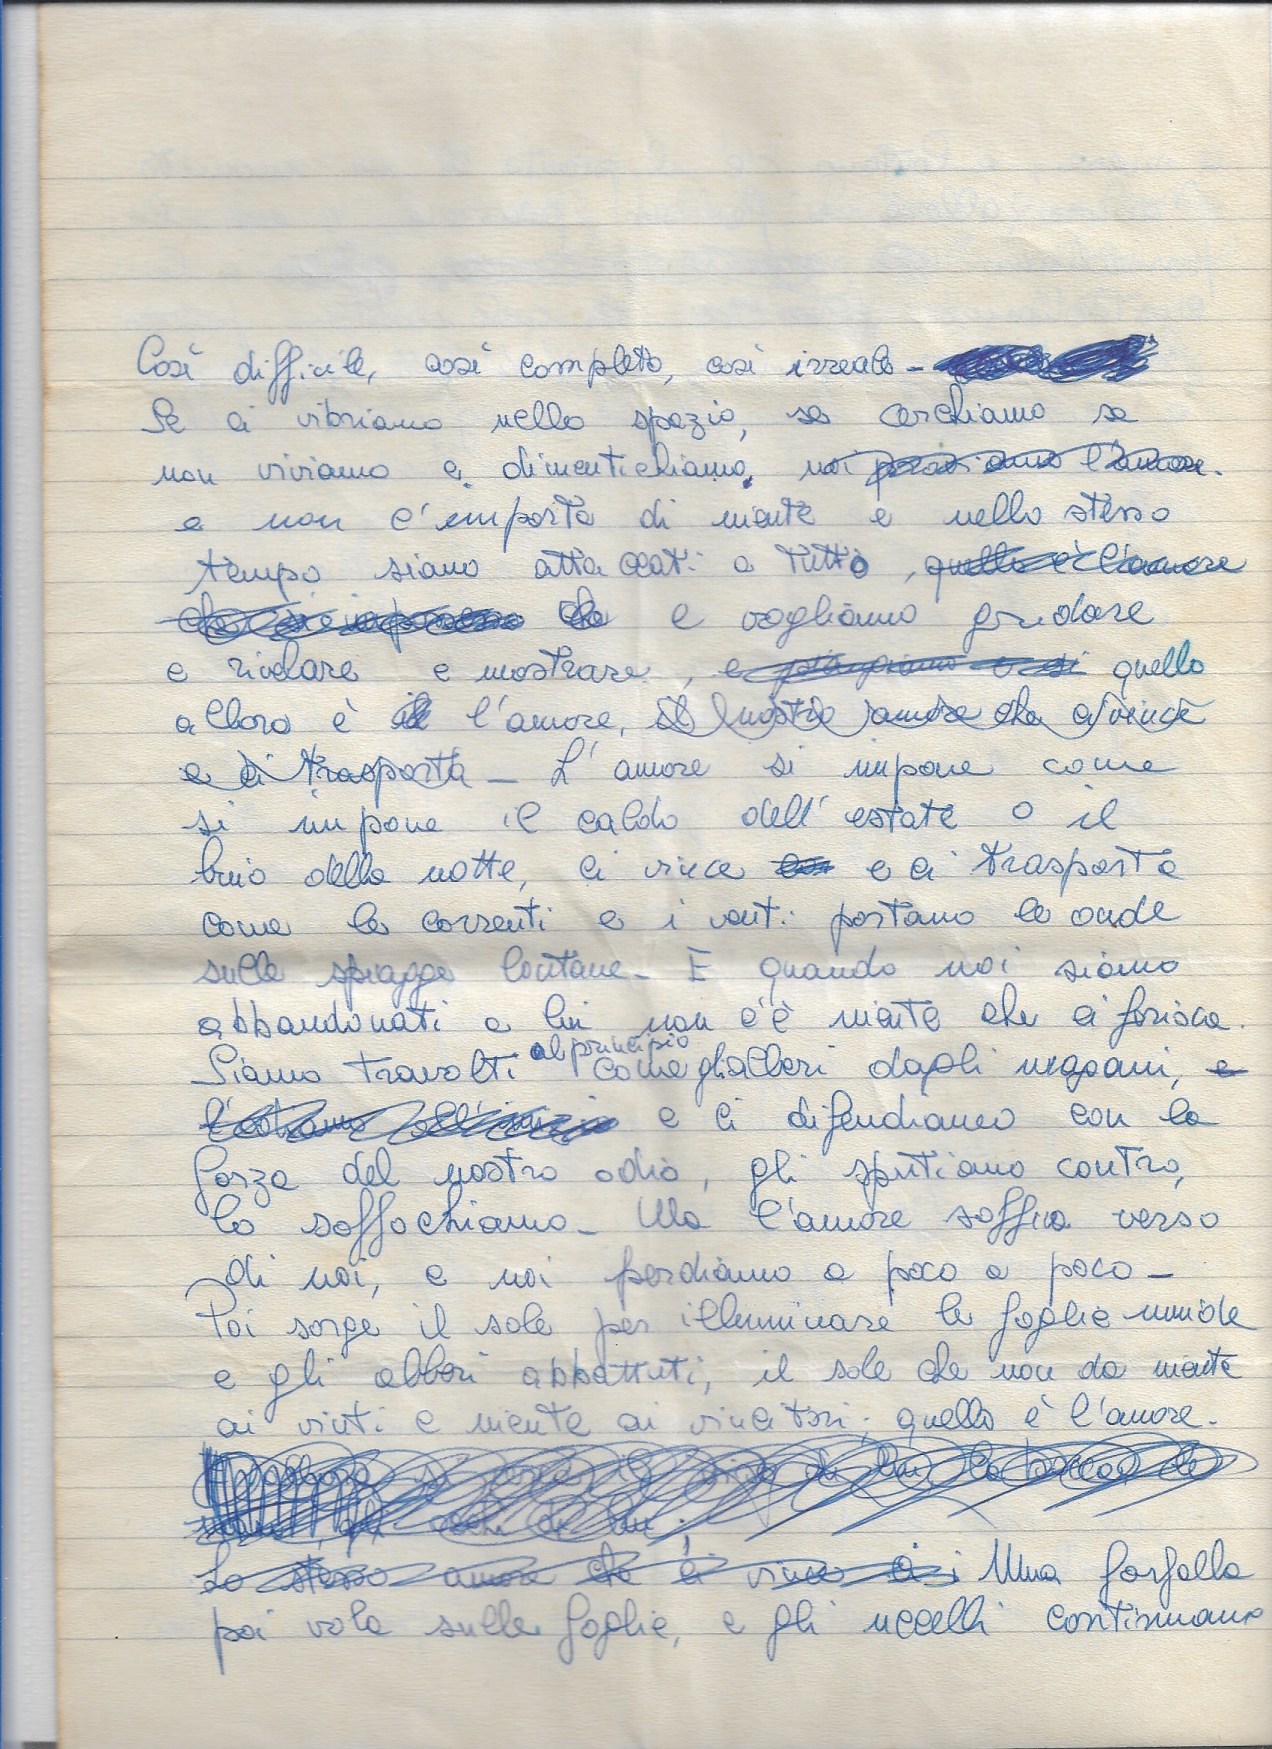 Così difficile, così completo, così irreale -
Se ci vibriamo nello spazio, se cerchiamo se
non viviamo e dimentichiamo, noi possiamo l'amore.
e non c'importa di niente e nello stesso
tempo siamo attaccati a tutto, quello è l'amore
che si impone che e vogliamo gridare
e rivelare e mostrare, e quello
allora è il l'amore, il nostro amore che ci vince
e ci trasporta - L'amore si impone come
si impone il caldo dell'estate o il
buio della notte, ci vince e ci trasporta
come le correnti e i venti portano le onde
sulle spiagge lontane - E quando noi siamo
abbandonati a lui non c'è niente che ci ferisca.
Siamo travolti al principio come gli alberi dagli uragani, e
e ci difendiamo con la
forza del nostro odio, gli sputiamo contro,
lo soffochiamo - Ma l'amore soffia verso
di noi, e noi perdiamo a poco a poco -
Poi sorge il sole per illuminare le foglie umide
e gli alberi abbattuti, il sole che non da niente
ai vinti e niente ai vincitori; quello è l'amore.
di lui.
Lo stesso amore che ci vince Una farfalla
poi vola sulle foglie, e gli uccelli continuano